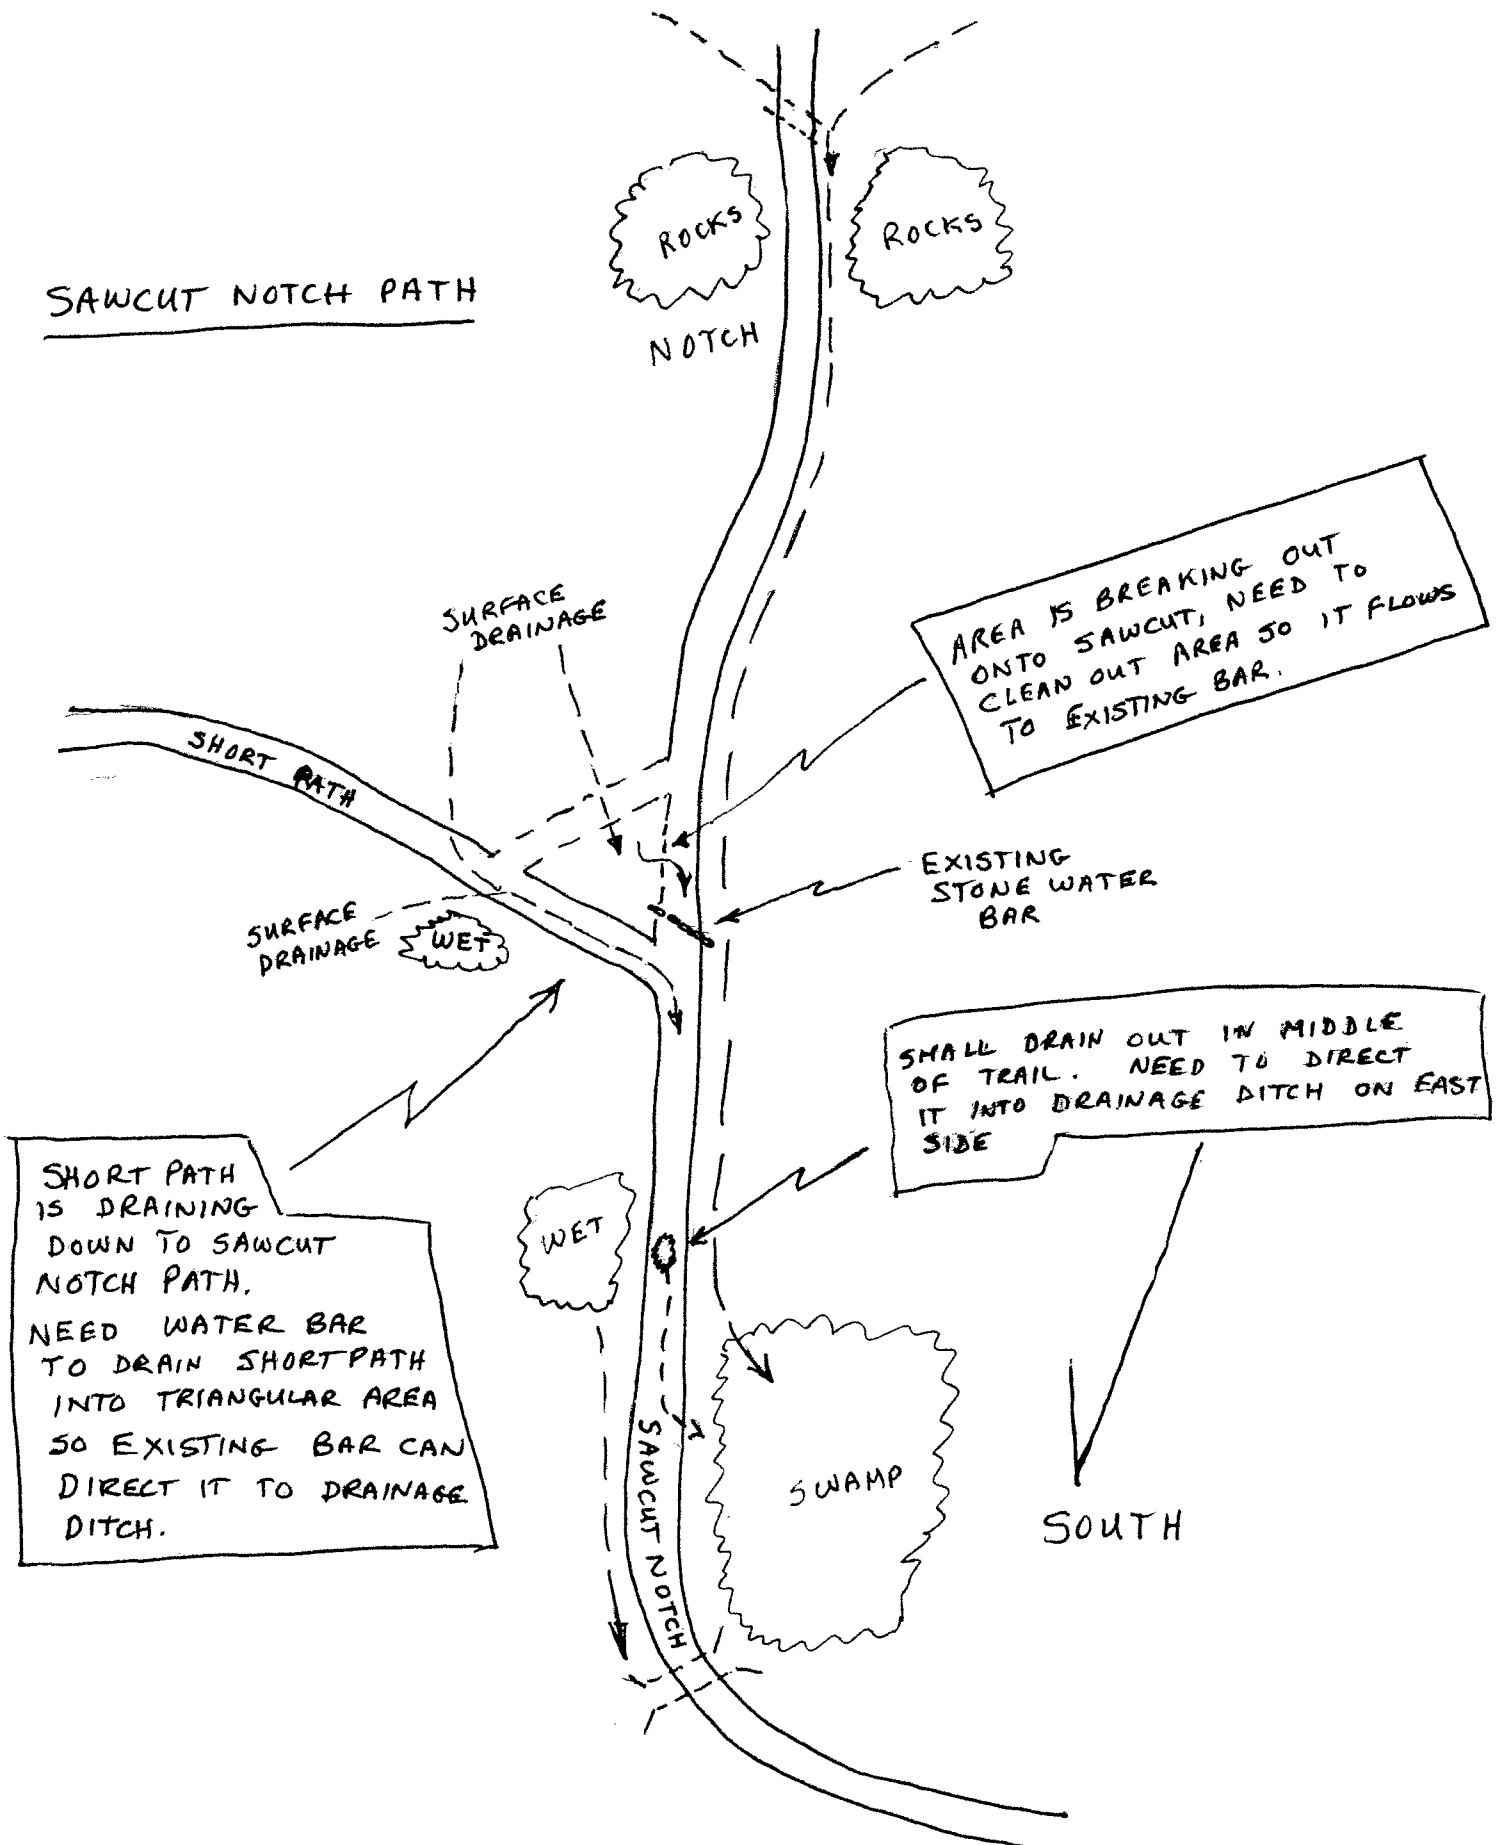 ROCKS
ROCKS
SAWCUT NOTCH PATH
NOTCH
AREA IS BREAKING OUT
ONTO SAWCUT, NEED TO
CLEAN OUT AREA SO IT FLOWS
TO EXISTING BAR.
SURFACE
DRAINAGE
SHORT PATH
EXISTING
STONE WATER
BAR
SURFACE
DRAINAGE
WET
SMALL DRAIN OUT IN MIDDLE
OF TRAIL. NEED TO DIRECT
IT INTO DRAINAGE DITCH ON EAST
SIDE
SHORT PATH
IS DRAINING
DOWN TO SAWCUT
NOTCH PATH.
NEED WATER BAR
TO DRAIN SHORTPATH
INTO TRIANGULAR AREA
SO EXISTING BAR CAN
DIRECT IT TO DRAINAGE
DITCH.
WET
SAWCUT NOTCH
SWAMP
SOUTH